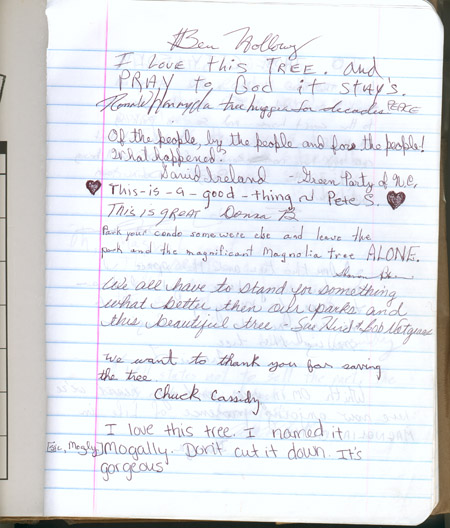 Ben Hollowy
I LOVE this TREE. and
PRAY to God it stay's.
a tree hugger for decades PEACE
Of the people, by the people and fore the people!
What happened?
David Ireland - Green Party of N.C.
This-is-a-good-thing ~ Pete S.
THIS IS GREAT Donna B
Park your condo somewere else and leave the
park and the magnificant Magnolia tree ALONE.
Sharon
We all have to stand for something
what better then our parks and
this beautiful tree - Sue & Bob
We want to thank you for saving
the tree
Chuck Cassidy
I love this tree. I named it
Mogally. Don't cut it down. It's
gorgeous